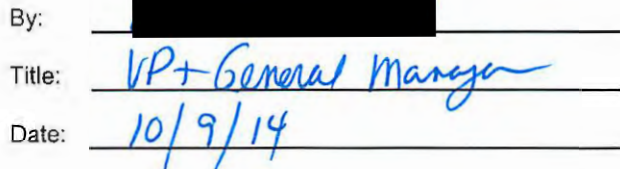 By:
Title: VP + General Manager
Date: 10/9/14